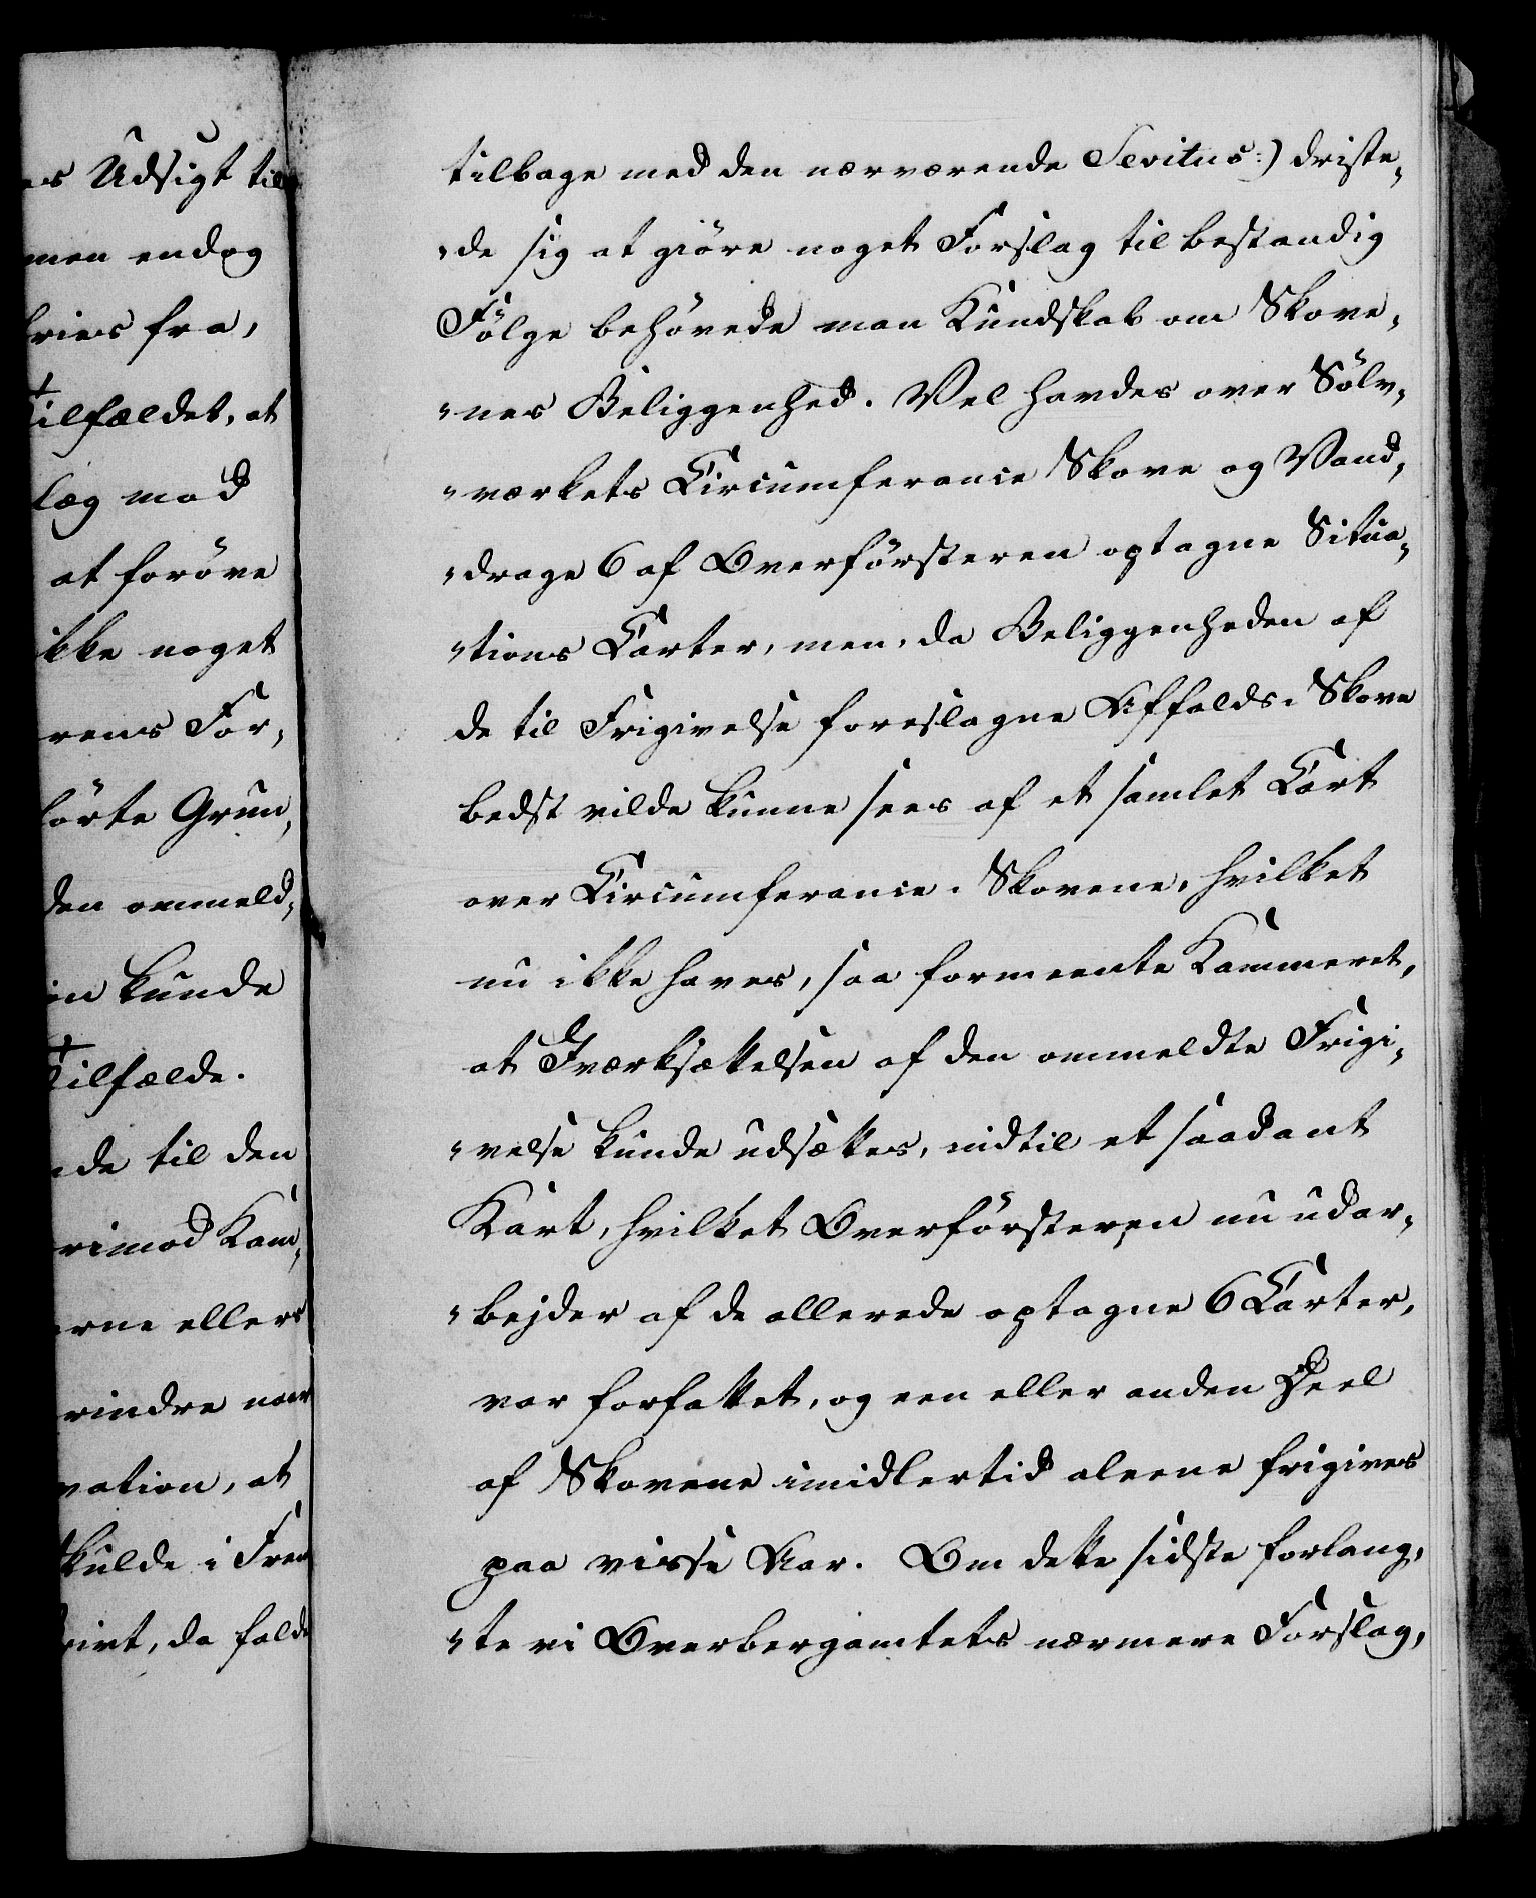 es Udsigt til
men endog
kries fra,
Tilfældet, at
læg mod
at forøve
ikke noget
rens For,
förte Grun,
den ommeld,
in kunde
Tilfælde.
nde til den
rimod Kam,
erne eller
rindre naar
vation, at
skulde i Frem
rivt, da faldt
tilbage med den nærværende Sevitus:) driste,
"de sig at giöre noget Forslag til bestandig
Fölge behövede man Kundskab om Skove,
"nes Beliggenhed. Vel havdes over Sölv,
"værkets Circumferance Skove og Vand,
"drage 6 af Overförsteren optagne Situa,
"tions Carter, men, da Beliggenheden af
de til Frigivelse foreslagne Affalds-Skove
bedst vilde kunne sees af et samlet Cart
over Circumferance-Skovene, hvilket
nu ikke haves, saa formeente Kammeret,
at Iværksættelsen af den ommeldte Frigi,
"velse kunde udsættes, indtil et saadant
Kart, hvilket Overförsteren nu udar,
"bejder af de allerede optagne 6 Carter,
var forfattet, og een eller anden Deel
af Skovene imidlertid aleene frigives
paa visse Aar. Om dette sidste forlang,
"te vi Overbergamtets nærmere Forslag,